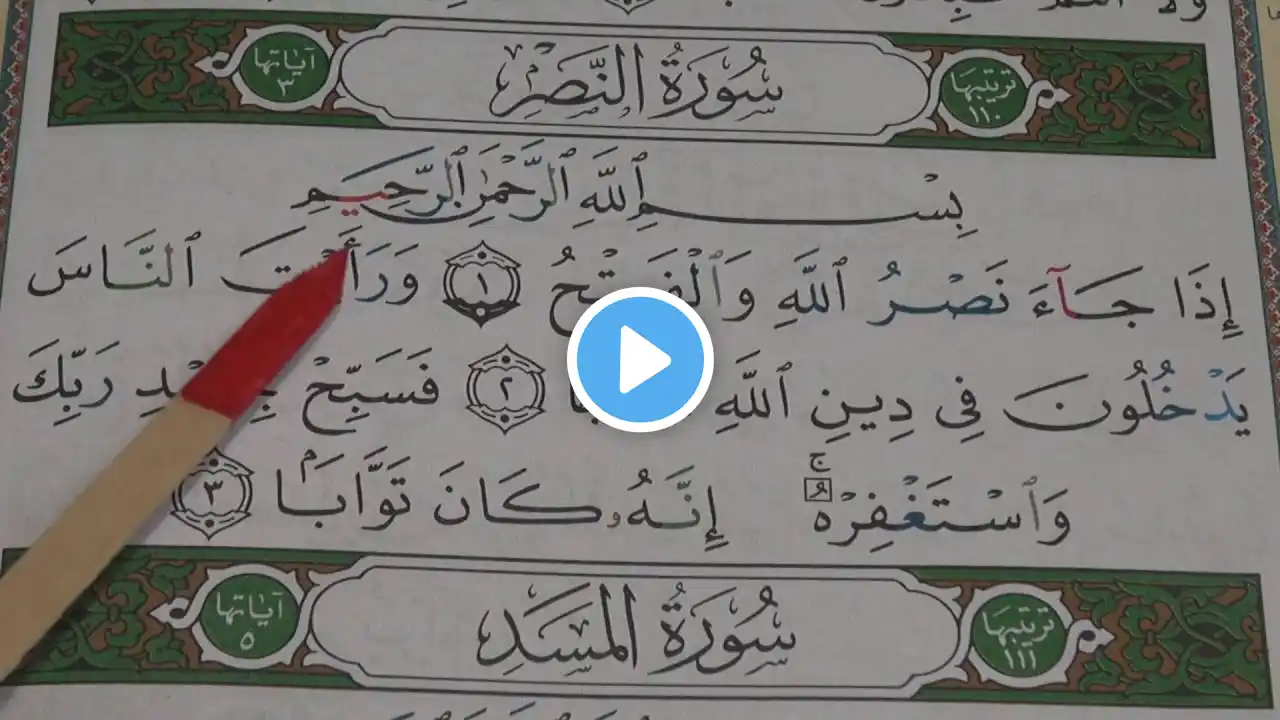 ترتيبها ١١٠ سُورَةُ النَّصْرِ آياتها ٣
بِسْمِ ٱللَّهِ ٱلرَّحْمَٰنِ ٱلرَّحِيمِ
إِذَا جَآءَ نَصْرُ ٱللَّهِ وَٱلْفَتْحُ ١ وَرَأَيْتَ ٱلنَّاسَ
يَدْخُلُونَ فِى دِينِ ٱللَّهِ ٢ فَسَبِّحْ رَبِّكَ
وَٱسْتَغْفِرْهُ ۚ إِنَّهُۥ كَانَ تَوَّابَۢا ٣
ترتيبها ١١١ سُورَةُ المَسَدِ آياتها ٥